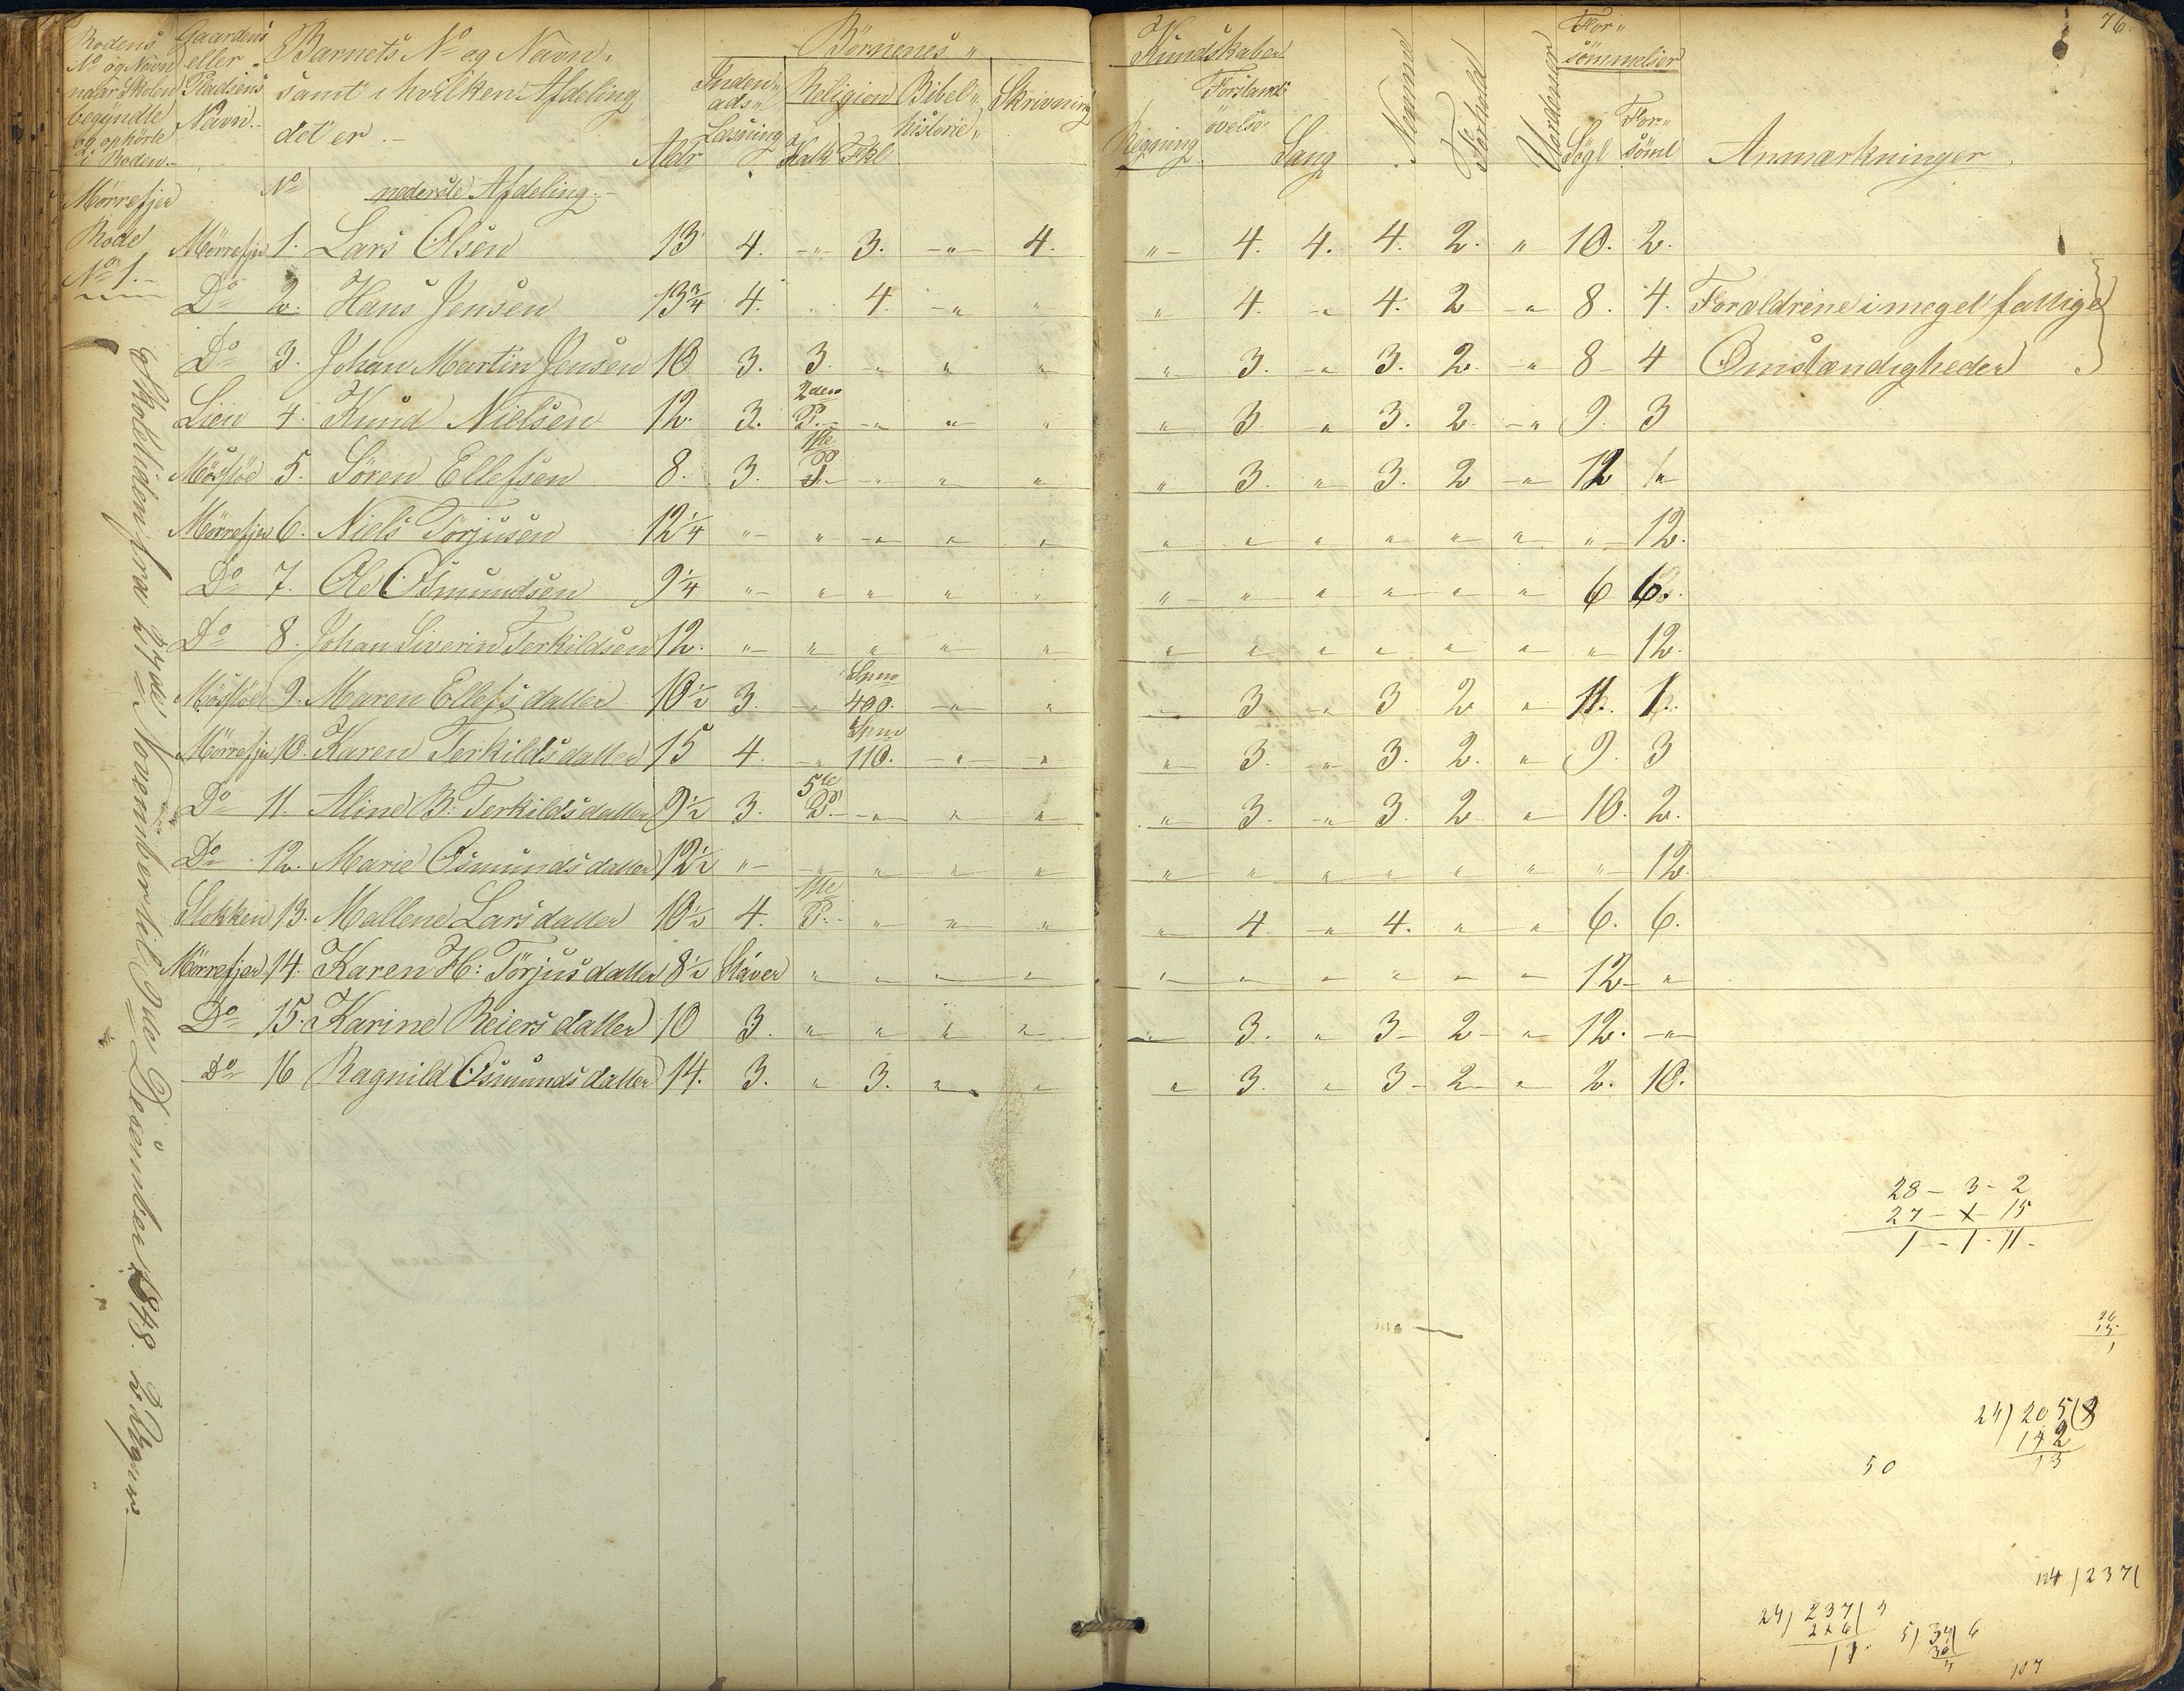 76.
Rodens Gaardens Barnets No og Navn, Börnenes " Kundskaber For"
No og Navn eller samt i hvilken Afdeling Religion Bibel" Skrivning Forstands sömmelser
naar Skolen Pladsens det er .- Læsning historie" övelse
begyndte Navn.- Aldr Regning Sang Nemme Forhold Sögt For"
og ophörte sömt Anmærkninger
i Roden.-
Mörrefjer No nederste Afdeling.-
Rode Mörrefjer 1. Lars Olsen 13 4. -"- 3. -"- 4. "- 4. 4. 4. 2. " 10. 2.
No 1.-
Do 2. Hans Jensen 13 3/4 4. . 4. -" " " 4. -" 4. 2 -" 8. 4. Forældrene i meget fattige
Do 3. Johan Martin Jensen 10 3. 3. -" " " " 3. -" 3. 2. -" 8- 4 Omstændigheder
Lien 4. Knud Nielsen 12. 3. 2den P.- -" " " " 3 " 3. 2. -" 9. 3
5. Sören Ellefsen 8. 3. 1ste P.- -" " " " 3. " 3. 2 -" 12 "
Mörrefjer 6. Niels Torjusen 12 1/4 "- " -" " " " " " " " " "- 12.
Do 7. Ole Osmundsen 9 1/4 "- " " " " " " " " " " 6 6.
Do 8. Johan Siverin Terkildsen 12. "- " " " " " " " " " " " 12.
9. Maren Ellefsdatter 10 1/2 3. " Spm 400. -" " " 3. " 3 2 " 11. 1.
Mörrefjer 10. Karen Terkildsdatter 15 4. -" Spm 110. -" -" " 3. " 3. 2. " 9. 3
Do 11. Aline B: Terkildsdatter 9 1/2 3. 5te P.- -" " " " 3. -" 3. 2 " 10. 2.
Do 12. Marie Osmundsdatter 12 1/2 "- " " " " " " " " " " "- 12.
Stokken 13. Mallene Larsdatter 10 1/2 4. 1ste P.- " " " " 4. " 4. " " 6. 6.
Mörrefjer 14. Karen H: Törjusdatter 8 1/2 Staver " " " " " " " " " " 12- "
Do 15. Karine Reiersdatter 10 3. " " " " " 3. " 3- 2- " 12. -"
Do 16 Ragnild Osmundsdatter 14. 3. " 3. " " " 3. " 3- 2- " 2. 10.
Skoletiden fra 27de November til 9de Desember 1848.
28- 3- 2
27- 4- 15
1-- 1- 11-
24) 205(8
192
13
50
24) 237( 9
216
5) 34( 6
30
4
124 ) 237(
107